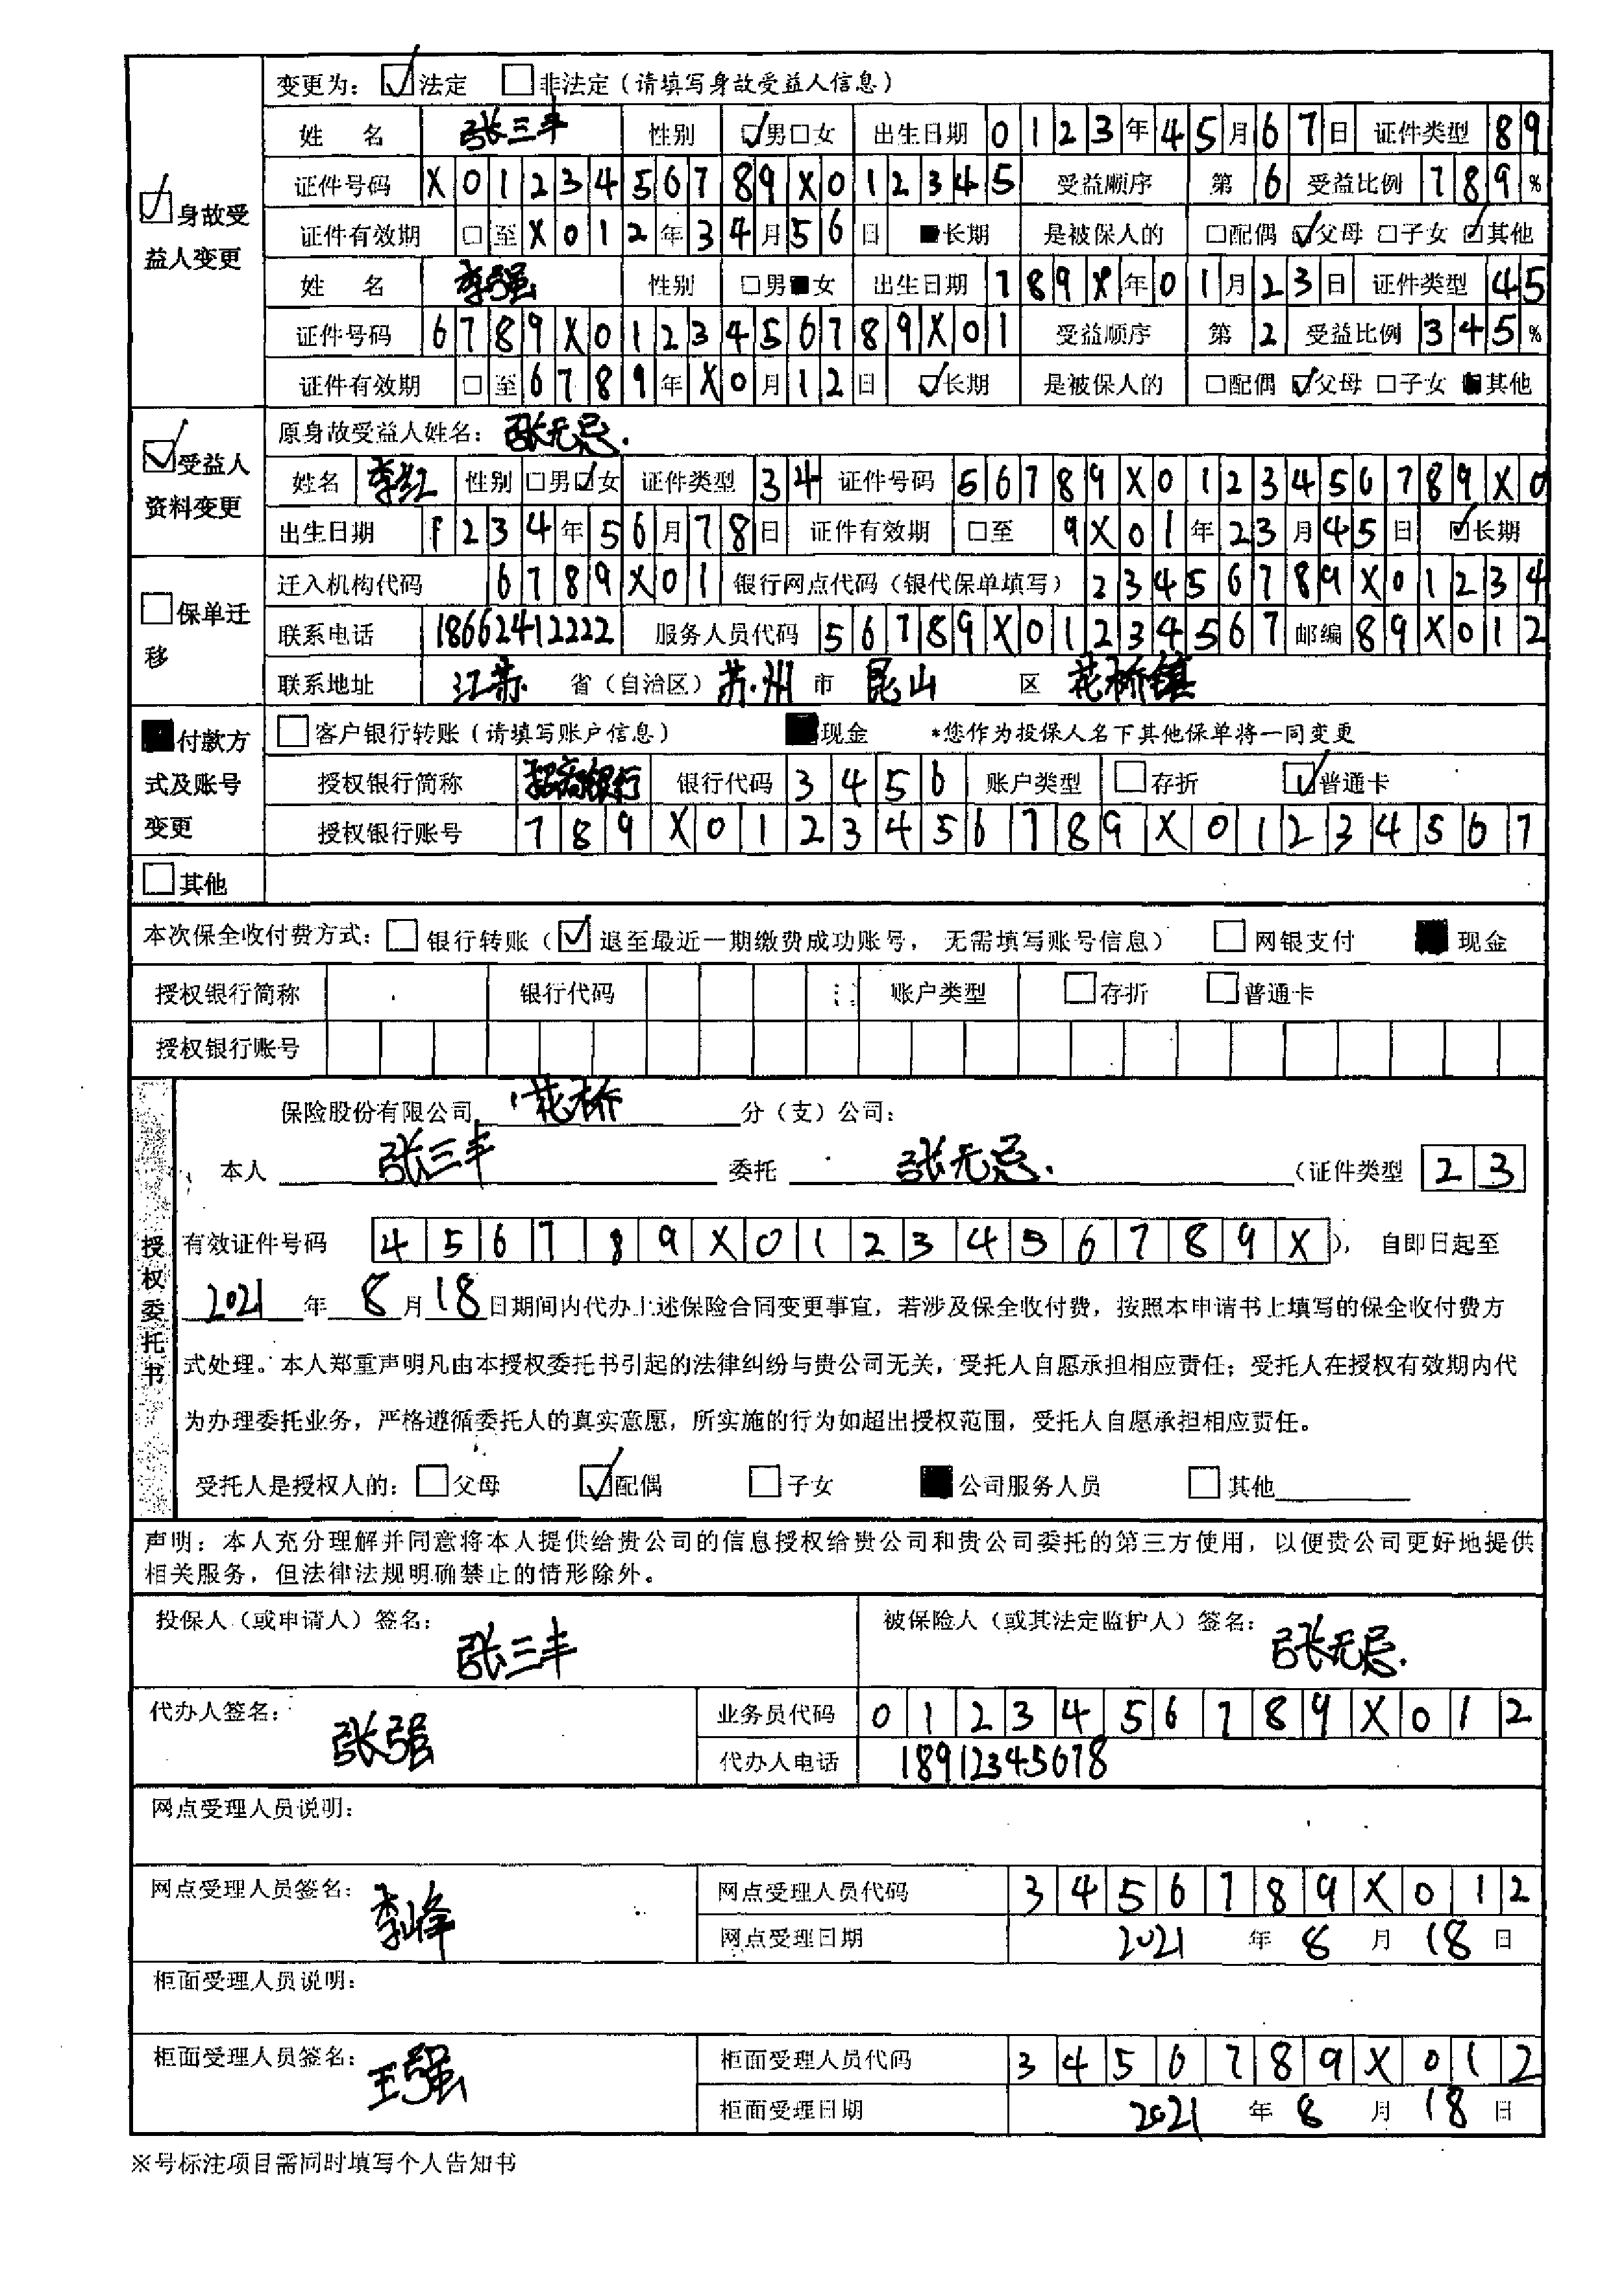 变更为：☑法定 □非法定（请填写身故受益人信息）
☑身故受益人变更
姓 名 张三丰 性别 ☑男□女 出生日期 0123年45月67日 证件类型 89
证件号码 X0123456789X012345 受益顺序 第 6 受益比例 789%
证件有效期 □至X012年34月56日 ■长期 是被保人的 □配偶 ☑父母 □子女 ☑其他
姓 名 李强 性别 □男■女 出生日期 789X年01月23日 证件类型 45
证件号码 6789X0123456789X01 受益顺序 第 2 受益比例 345%
证件有效期 □至6789年X0月12日 ☑长期 是被保人的 □配偶 ☑父母 □子女 ■其他
☑受益人资料变更
原身故受益人姓名：张无忌.
姓名 李红 性别 □男☑女 证件类型 34 证件号码 56789X0123456789X0
出生日期 234年56月78日 证件有效期 □至 9X01年23月45日 ☑长期
□保单迁移
迁入机构代码 6789X01 银行网点代码（银代保单填写）23456789X01234
联系电话 18662412222 服务人员代码 56789X01234567 邮编 89X012
联系地址 江苏 省（自治区）苏州 市 昆山 区 花桥镇
■付款方式及账号变更
□客户银行转账（请填写账户信息） ■现金 *您作为投保人名下其他保单将一同变更
授权银行简称 招商银行 银行代码 3456 账户类型 □存折 ☑普通卡
授权银行账号 789X0123456789X01234567
□其他
本次保全收付费方式：□银行转账（☑退至最近一期缴费成功账号， 无需填写账号信息） □网银支付 ■现金
授权银行简称 银行代码 账户类型 □存折 □普通卡
授权银行账号
授权委托书
保险股份有限公司 花桥 分（支）公司：
本人 张三丰 委托 张无忌. （证件类型 23
有效证件号码 456789X0123456789X）， 自即日起至
2021 年 8 月 18 日期间内代办上述保险合同变更事宜，若涉及保全收付费，按照本申请书上填写的保全收付费方
式处理。本人郑重声明凡由本授权委托书引起的法律纠纷与贵公司无关，受托人自愿承担相应责任；受托人在授权有效期内代
为办理委托业务，严格遵循委托人的真实意愿，所实施的行为如超出授权范围，受托人自愿承担相应责任。
受托人是授权人的：□父母 ☑配偶 □子女 ■公司服务人员 □其他
声明：本人充分理解并同意将本人提供给贵公司的信息授权给贵公司和贵公司委托的第三方使用，以便贵公司更好地提供
相关服务，但法律法规明确禁止的情形除外。
投保人（或申请人）签名： 张三丰 被保险人（或其法定监护人）签名： 张无忌.
代办人签名： 张强 业务员代码 0123456789X012
代办人电话 18912345678
网点受理人员说明：
网点受理人员签名： 李峰 网点受理人员代码 3456789X012
网点受理日期 2021 年 8 月 18 日
柜面受理人员说明：
柜面受理人员签名： 王强 柜面受理人员代码 3456789X012
柜面受理日期 2021 年 8 月 18 日
※号标注项目需同时填写个人告知书